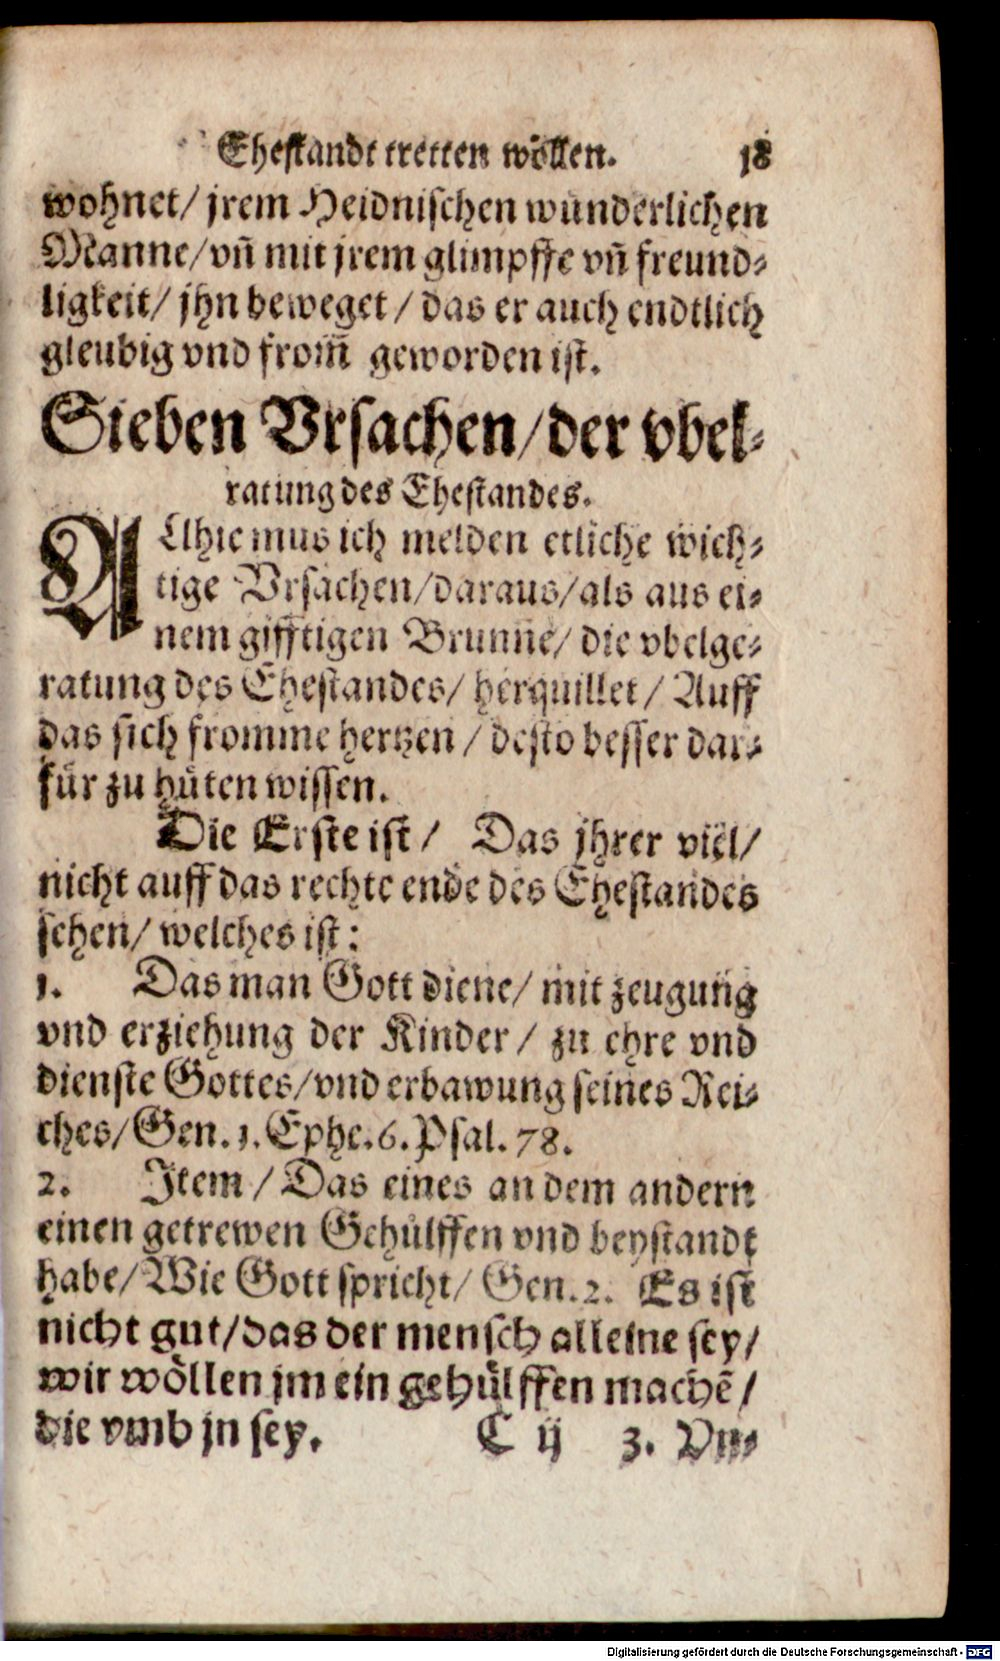 Ehestandt tretten wöllen. 18
wohnet/ jrem Heidnischen wunderlichen
Manne/ vn̄ mit jrem glimpffe vn̄ freund⸗
ligkeit/ jhn beweget / das er auch endtlich
gleubig vnd from̄ geworden ist.
Sieben Vrsachen/ der vbel⸗
ratung des Ehestandes.
ALhie mus ich melden etliche wich⸗
tige Vrsachen/ daraus/ als aus ei⸗
nem gifftigen Brunne/ die vbelge⸗
ratung des Ehestandes/ herquillet / Auff
das sich fromme hertzen / desto besser dar⸗
für zu hüten wissen.
Die Erste ist / Das jhrer viel/
nicht auff das rechte ende des Ehestandes
sehen/ welches ist:
1. Das man Gott diene/ mit zeugung
vnd erziehung der Kinder / zu ehre vnd
dienste Gottes/ vnd erbawung seines Rei⸗
ches/ Gen. 1. Ephe. 6. Psal. 78.
2. Item / Das eines an dem andern
einen getrewen Gehülffen vnd beystandt
habe/ Wie Gott spricht/ Gen. 2. Es ist
nicht gut/ das der mensch alleine sey/
wir wöllen jm ein gehülffen machē/
die vmb jn sey. C ij 3. Vn⸗
Digitalisierung gefördert durch die Deutsche Forschungsgemeinschaft - DFG